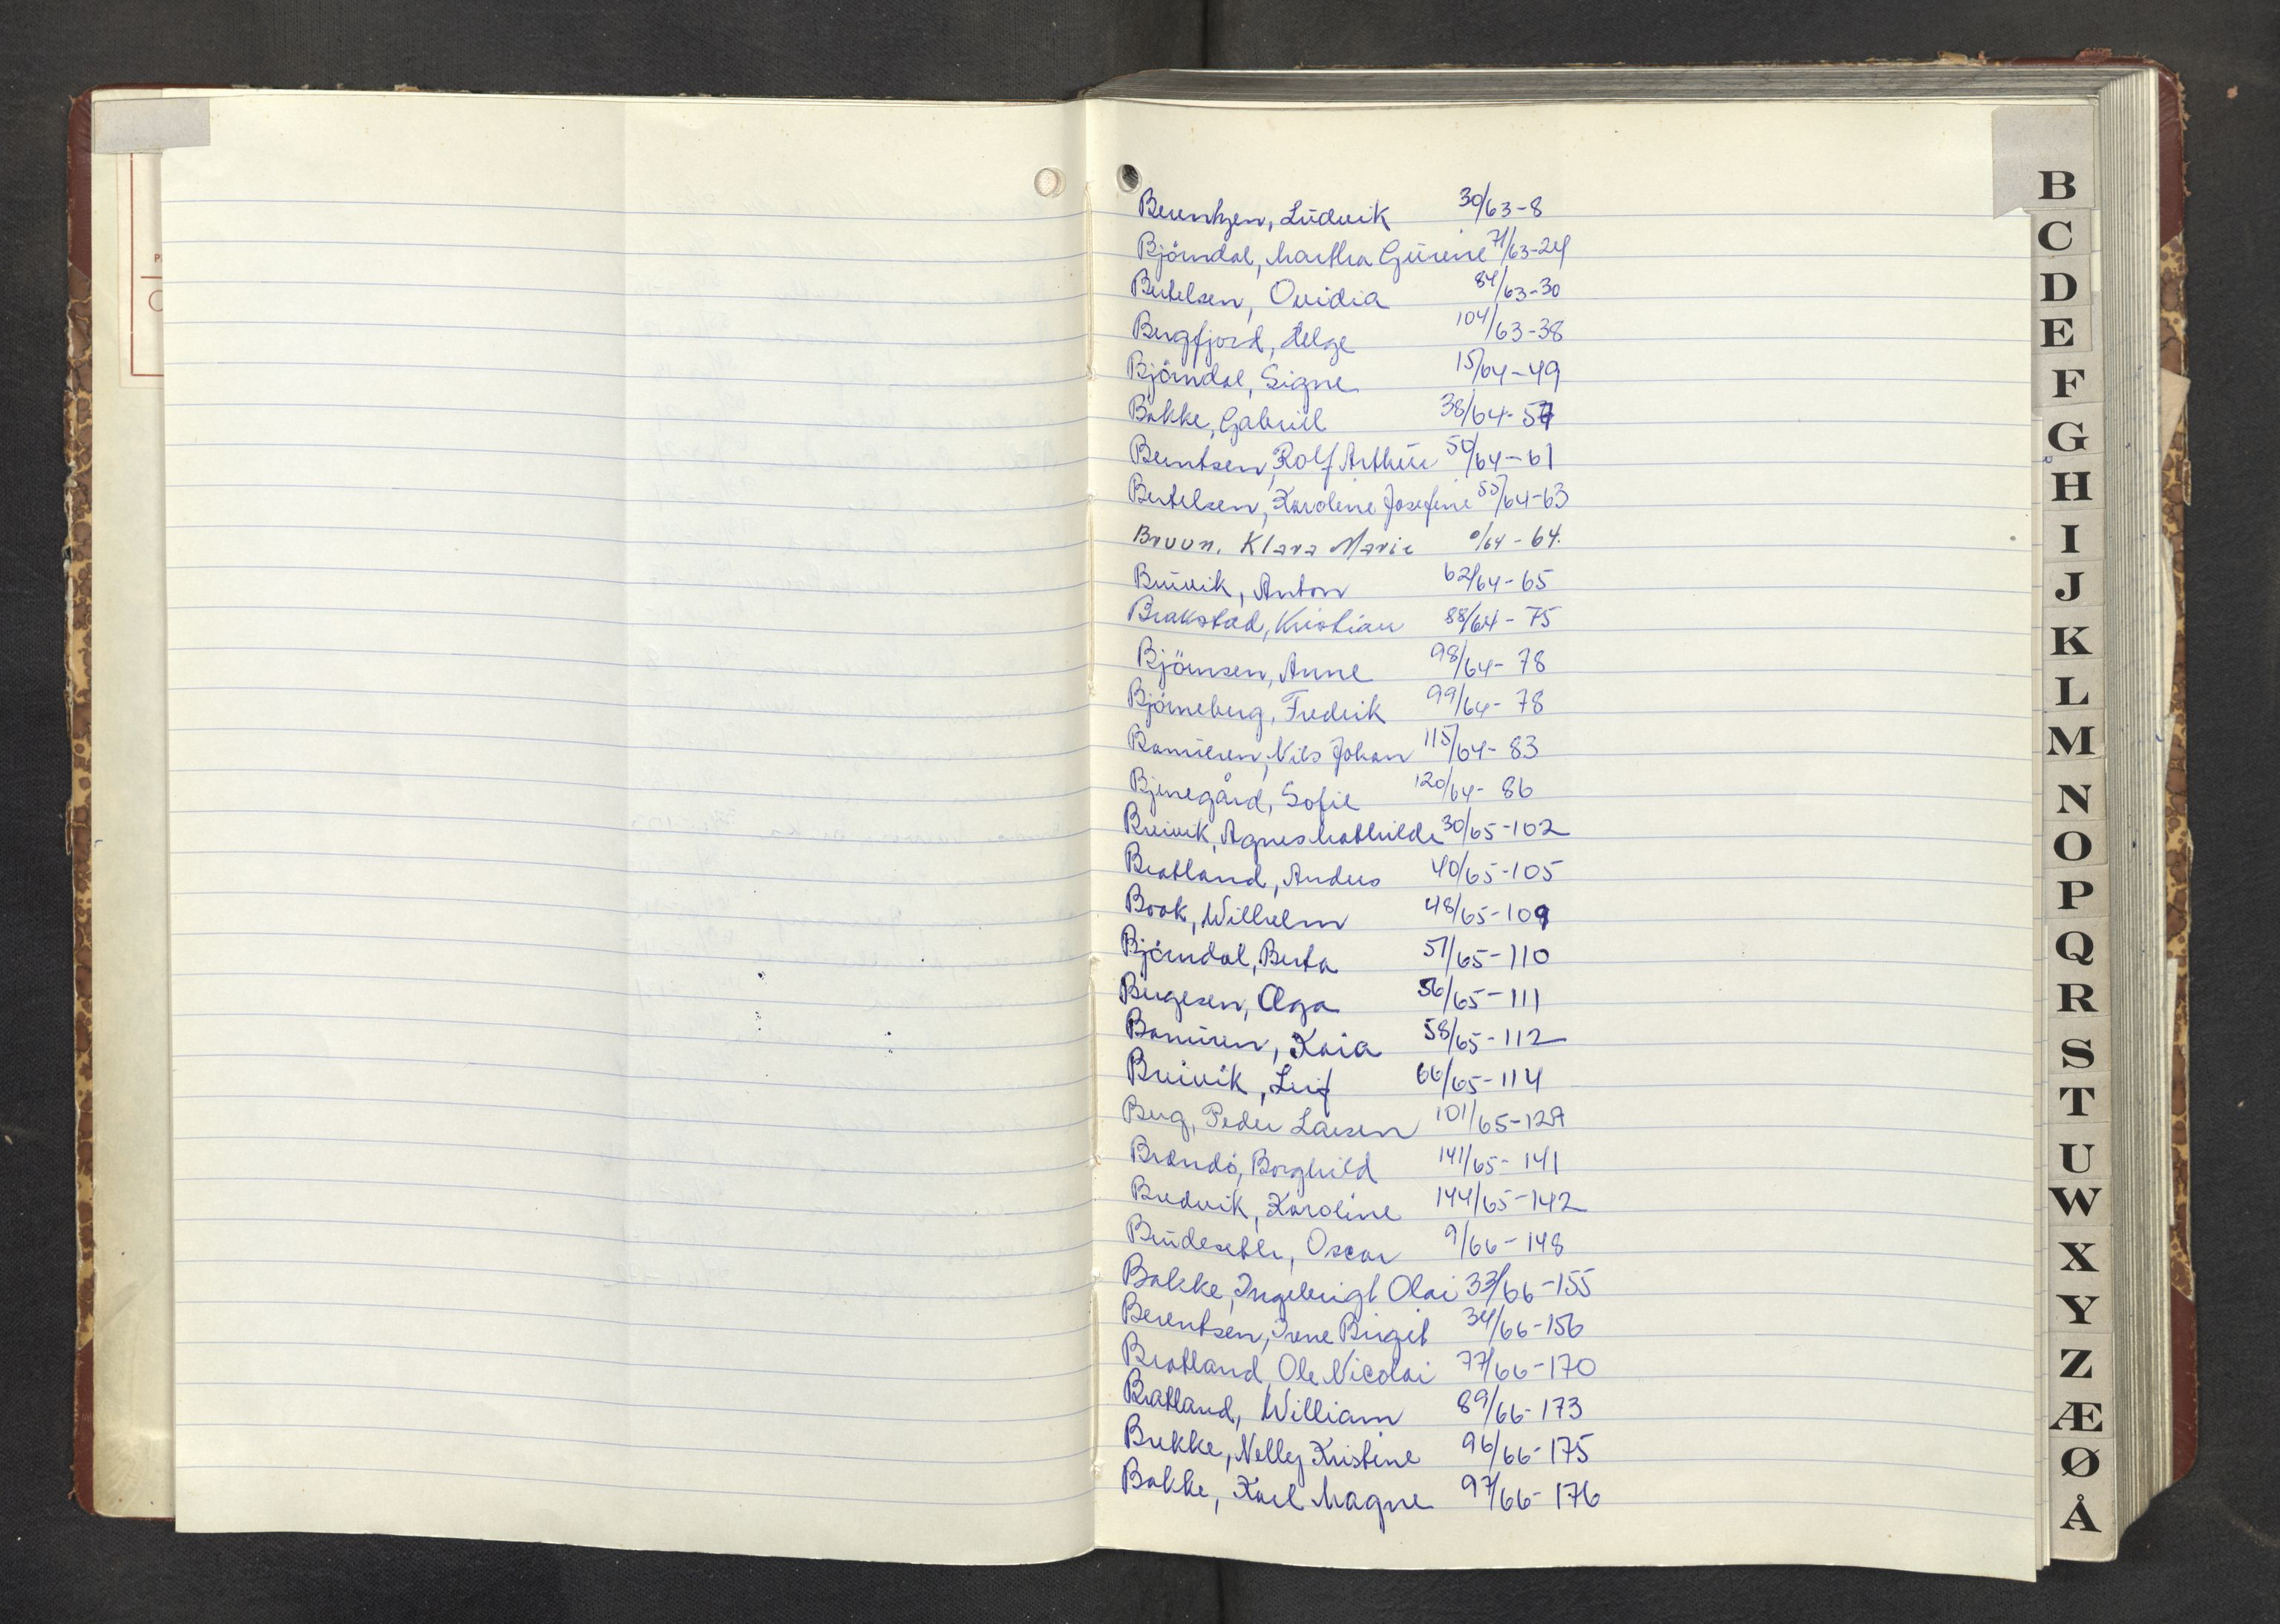 Berentzen, Ludvik 30/63-8
Björndal, Martha Gurine 71/63-24
Bertelsen, Ovidia 84/63-30
Bergfjord, Helge 104/63-38
Björndal, Signe 15/64-49
Bakke, Gabriel 38/64-57
Berntsen, Rolf Arthur 50/64-61
Bertelsen, Karoline Josefine 55/64-63
Bruun, Klara Marie 0/64-64.
Breivik, Anton 62/64-65
Brakstad, Kristian 88/64-75
Björnsen, Anne 98/64-78
Björneberg, Fredrik 99/64-78
Nils Johan 115/64-83
Bjerregård, Sofie 120/64-86
Breivik, Agnes Mathilde 30/65-102
Bratland, Anders 40/65-105
Book, Wilhelm 48/65-109
Björndal, Berta 51/65-110
Birgesen, Olga 56/65-111
Kaia 58/65-112
Breivik, Leif 66/65-114
Berg, Peder Larsen 101/65-127
Brandö, Borghild 141/65-141
Bredvik, Karoline 144/65-142
Oscar 9/66-148
Bakke, Ingebrigt Olai 33/66-155
Berentsen, Irene Birgit 34/66-156
Bratland, Ole Nicolai 77/66-170
Bratland, William 89/66-173
Brekke, Nelly Kristine 96/66-175
Bakke, Karl Magne 97/66-176
B
C
D
E
F
G
H
I
J
K
L
M
N
O
P
Q
R
S
T
U
W
X
Y
Z
Æ
Ø
Å